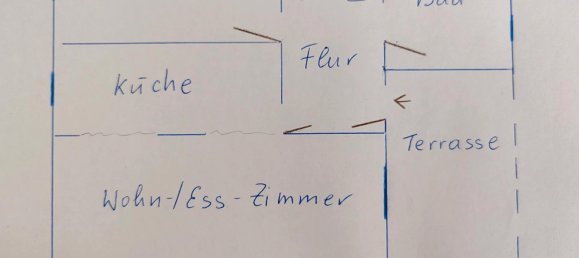 Bad
Flur
Küche
Terrasse
Wohn-/Ess-Zimmer